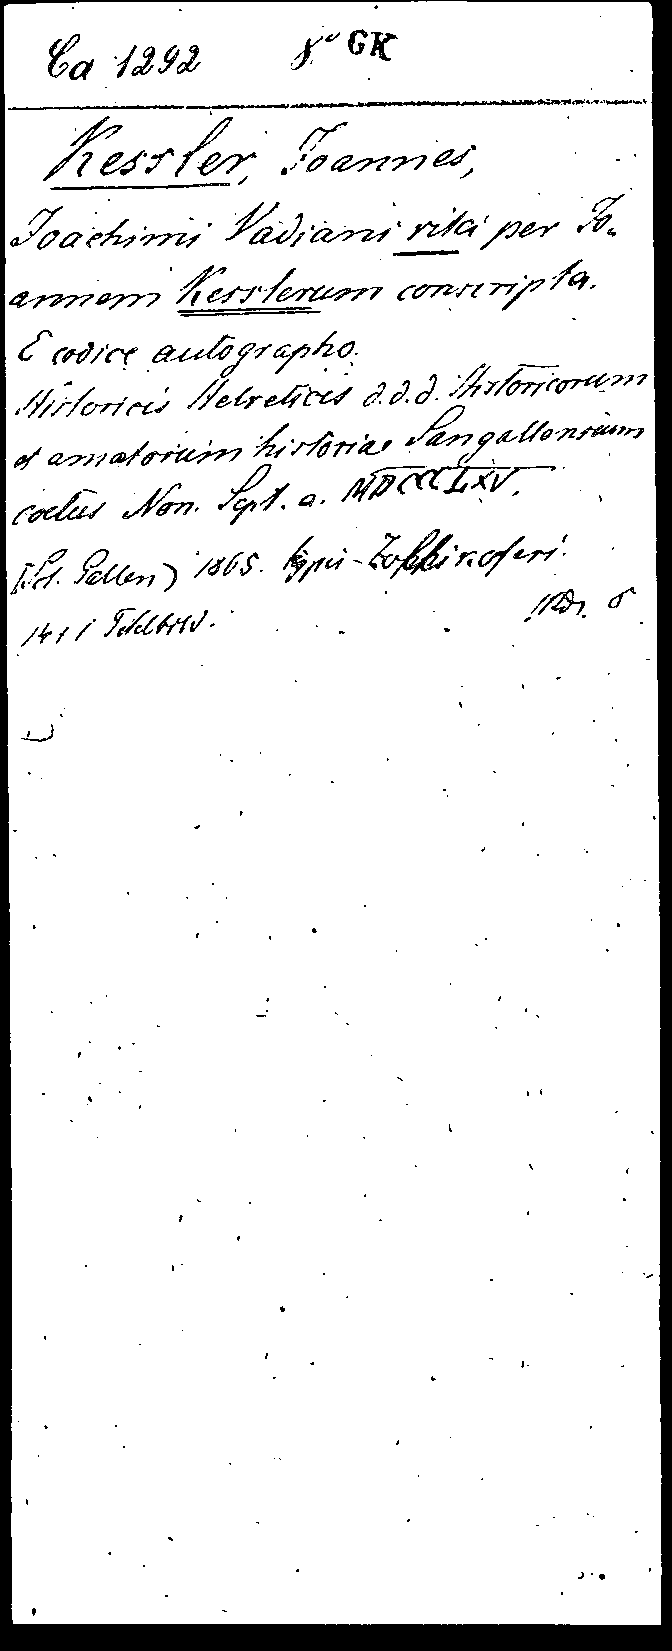 Ca 1292 8° GK
Kessler, Joannes,
Joachimi Vadiani vita per Jo-
annem Kesslerum conscripta.
E codice autographo.
Historicis Helveticis d.d.d. Historicorum
et amatorum historiae Sangallensium
coetus Non. Sept. a. MDCCCLXV.
(St. Gallen) 1865. typis Zollikoferi.
14 S. 1 Titelbild.